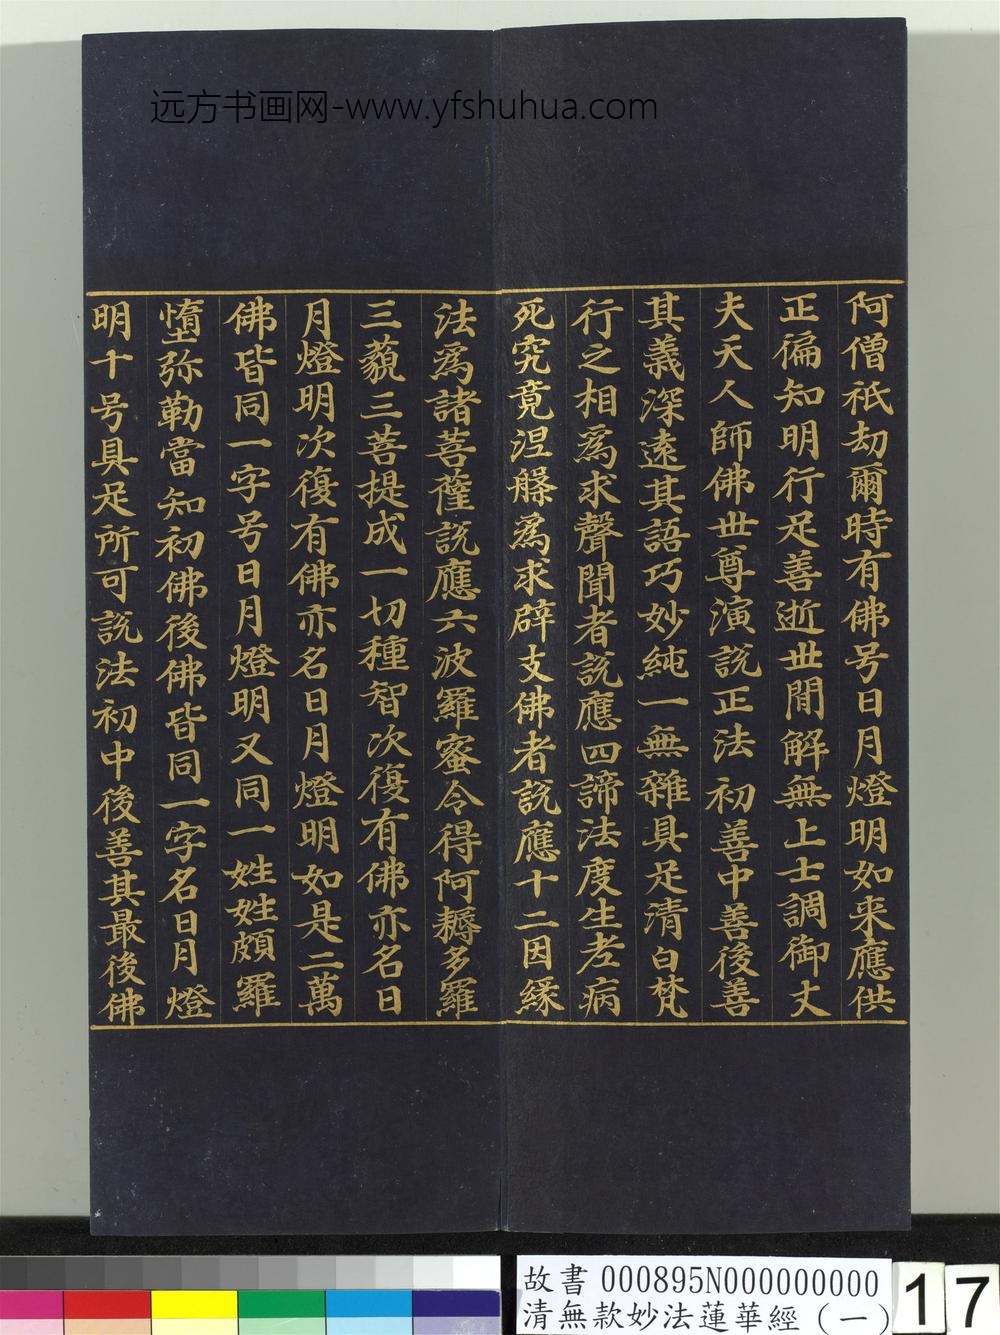 远方书画网-www.yfshuhua.com
阿僧祇劫爾時有佛号日月燈明如来應供
正徧知明行足善逝世間解無上士調御丈
夫天人師佛世尊演說正法初善中善後善
其義深遠其語巧妙純一無雜具足清白梵
行之相為求聲聞者說應四諦法度生老病
死究竟涅槃為求辟支佛者說應十二因縁
法為諸菩薩說應六波羅蜜令得阿耨多羅
三藐三菩提成一切種智次復有佛亦名日
月燈明次復有佛亦名日月燈明如是二萬
佛皆同一字号日月燈明又同一姓姓頗羅
墮弥勒當知初佛後佛皆同一字名日月燈
明十号具足所可說法初中後善其最後佛
故書 000895N000000000
清無款妙法蓮華經（一）
17